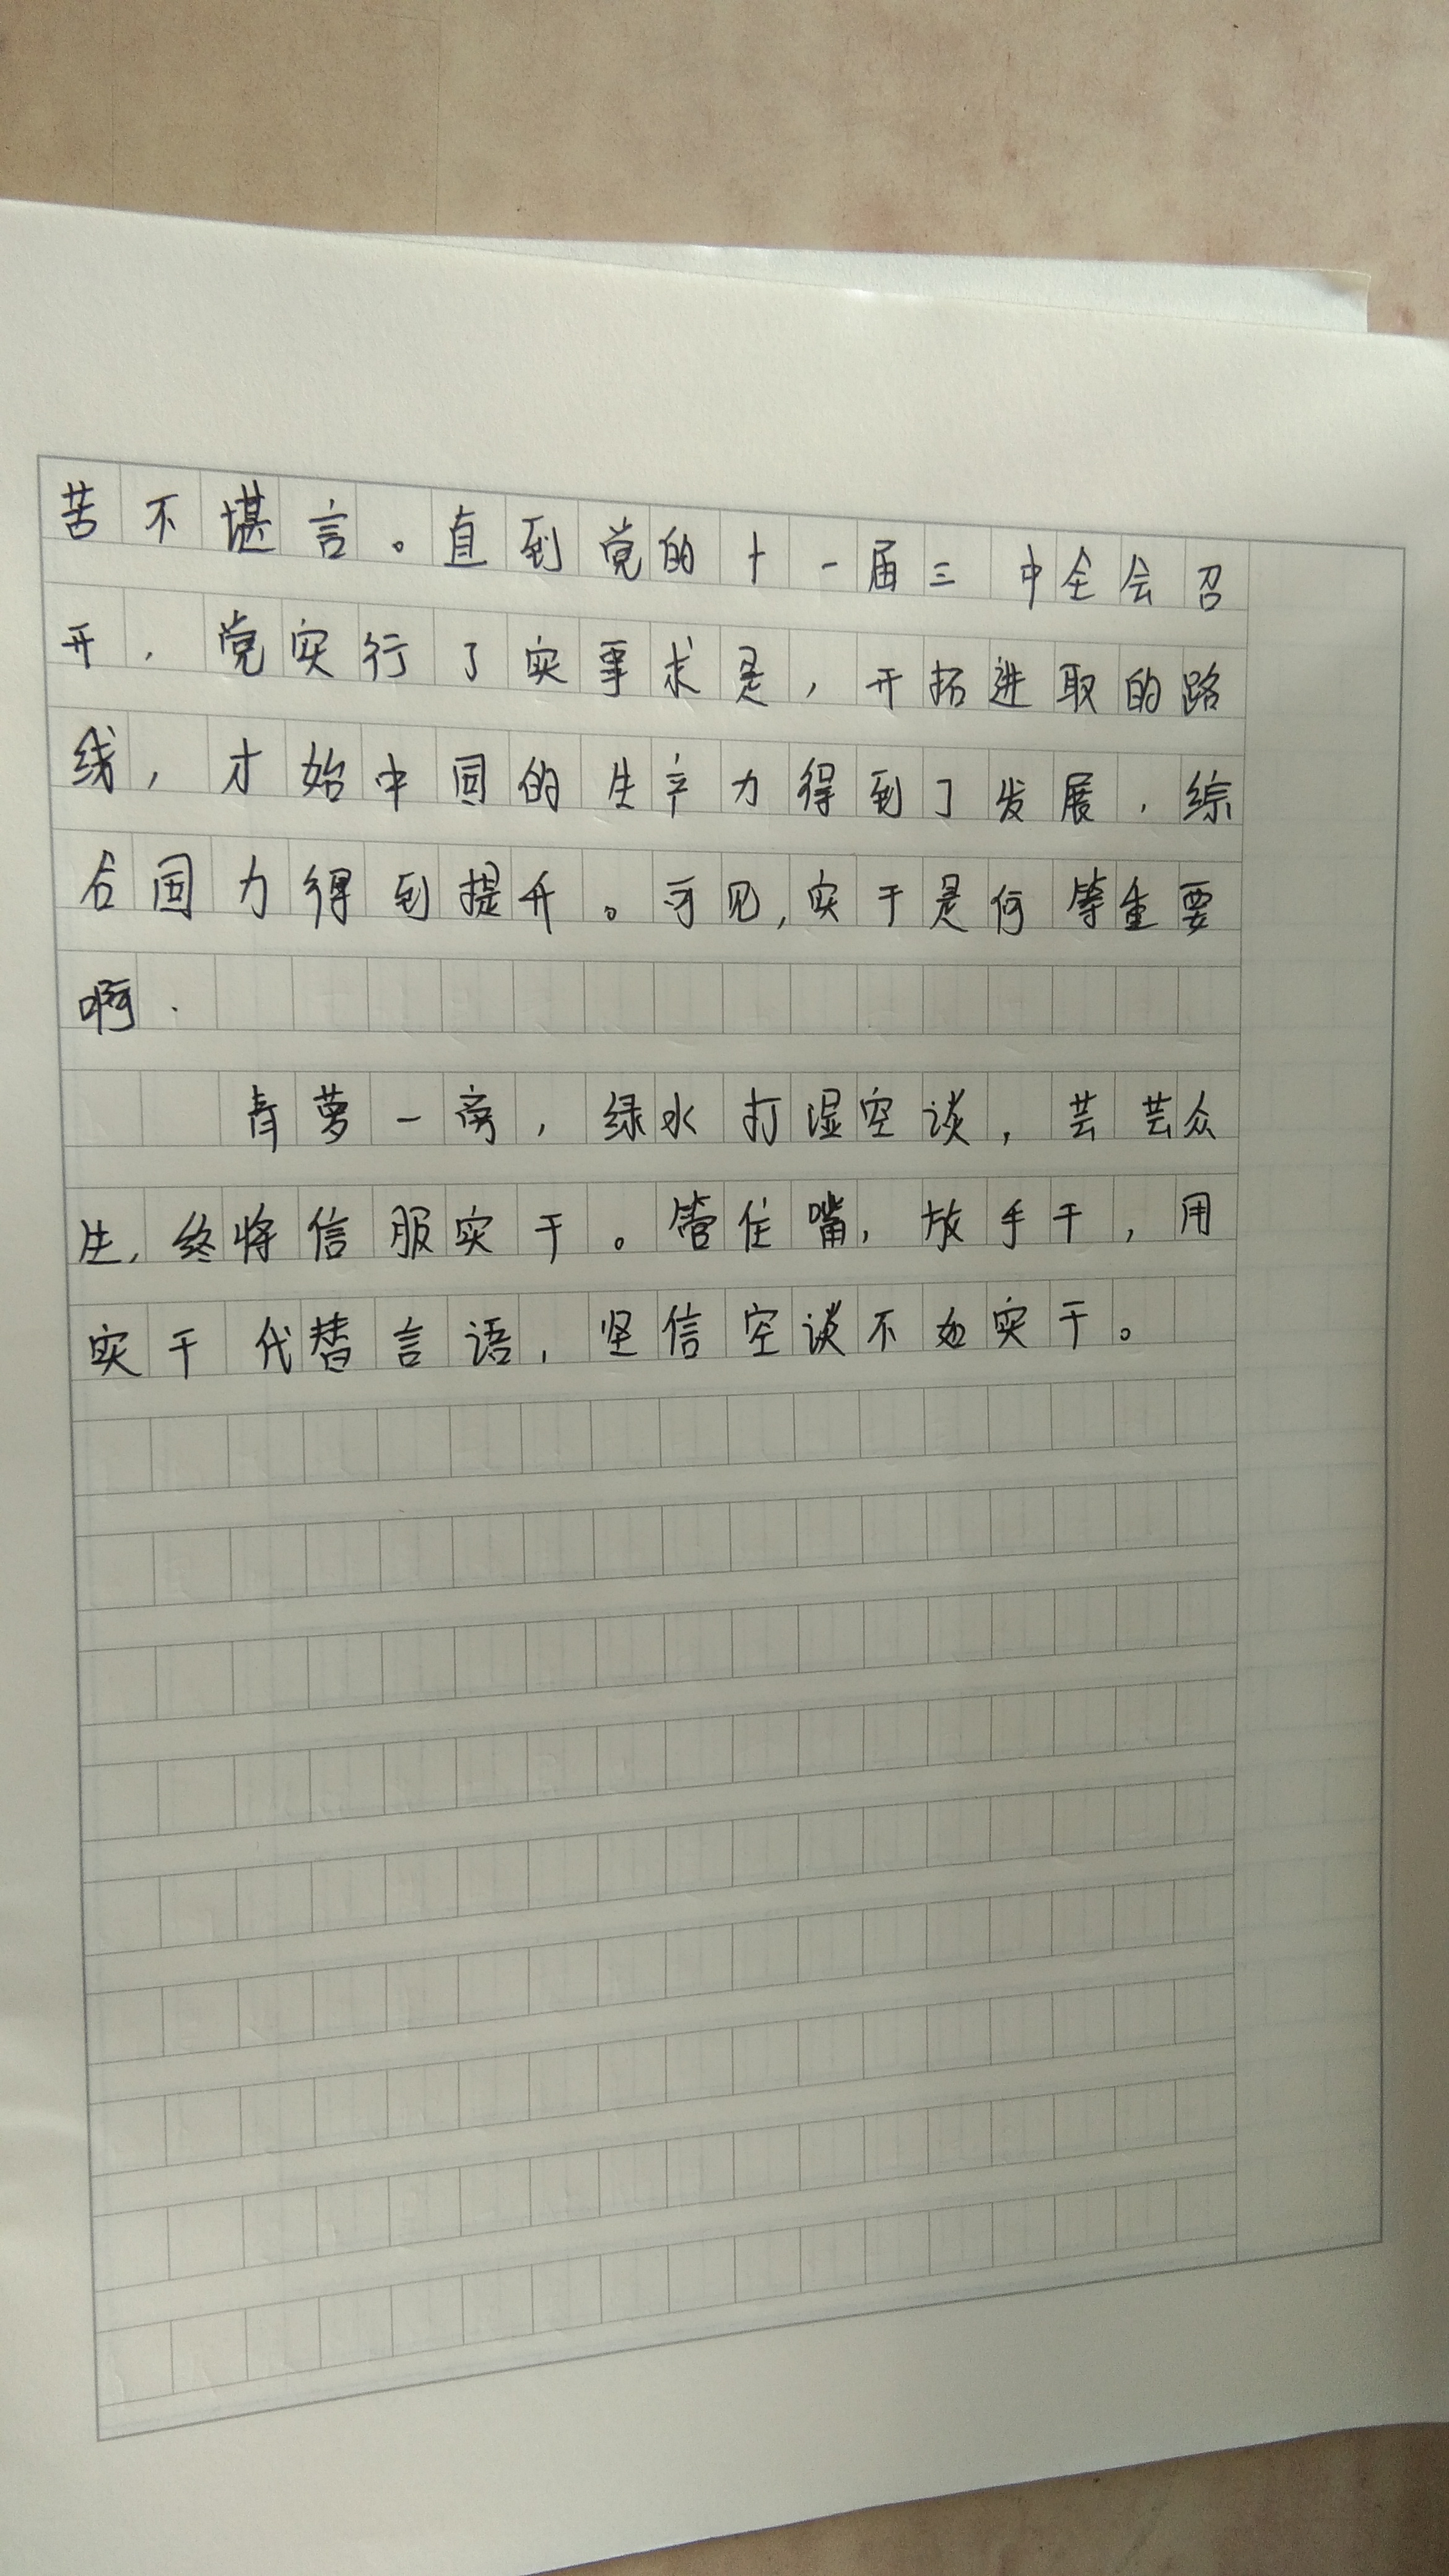 苦不堪言。直到党的十一届三中全会召
开,党实行了实事求是,开拓进取的路
线,才始中国的生产力得到了发展,综
合国力得到提升。可见,实干是何等重要
啊.
青萝一离,绿水打湿空谈,芸芸众
生,终将信服实干。管住嘴,放手干,用
实干代替言语,坚信空谈不如实干。